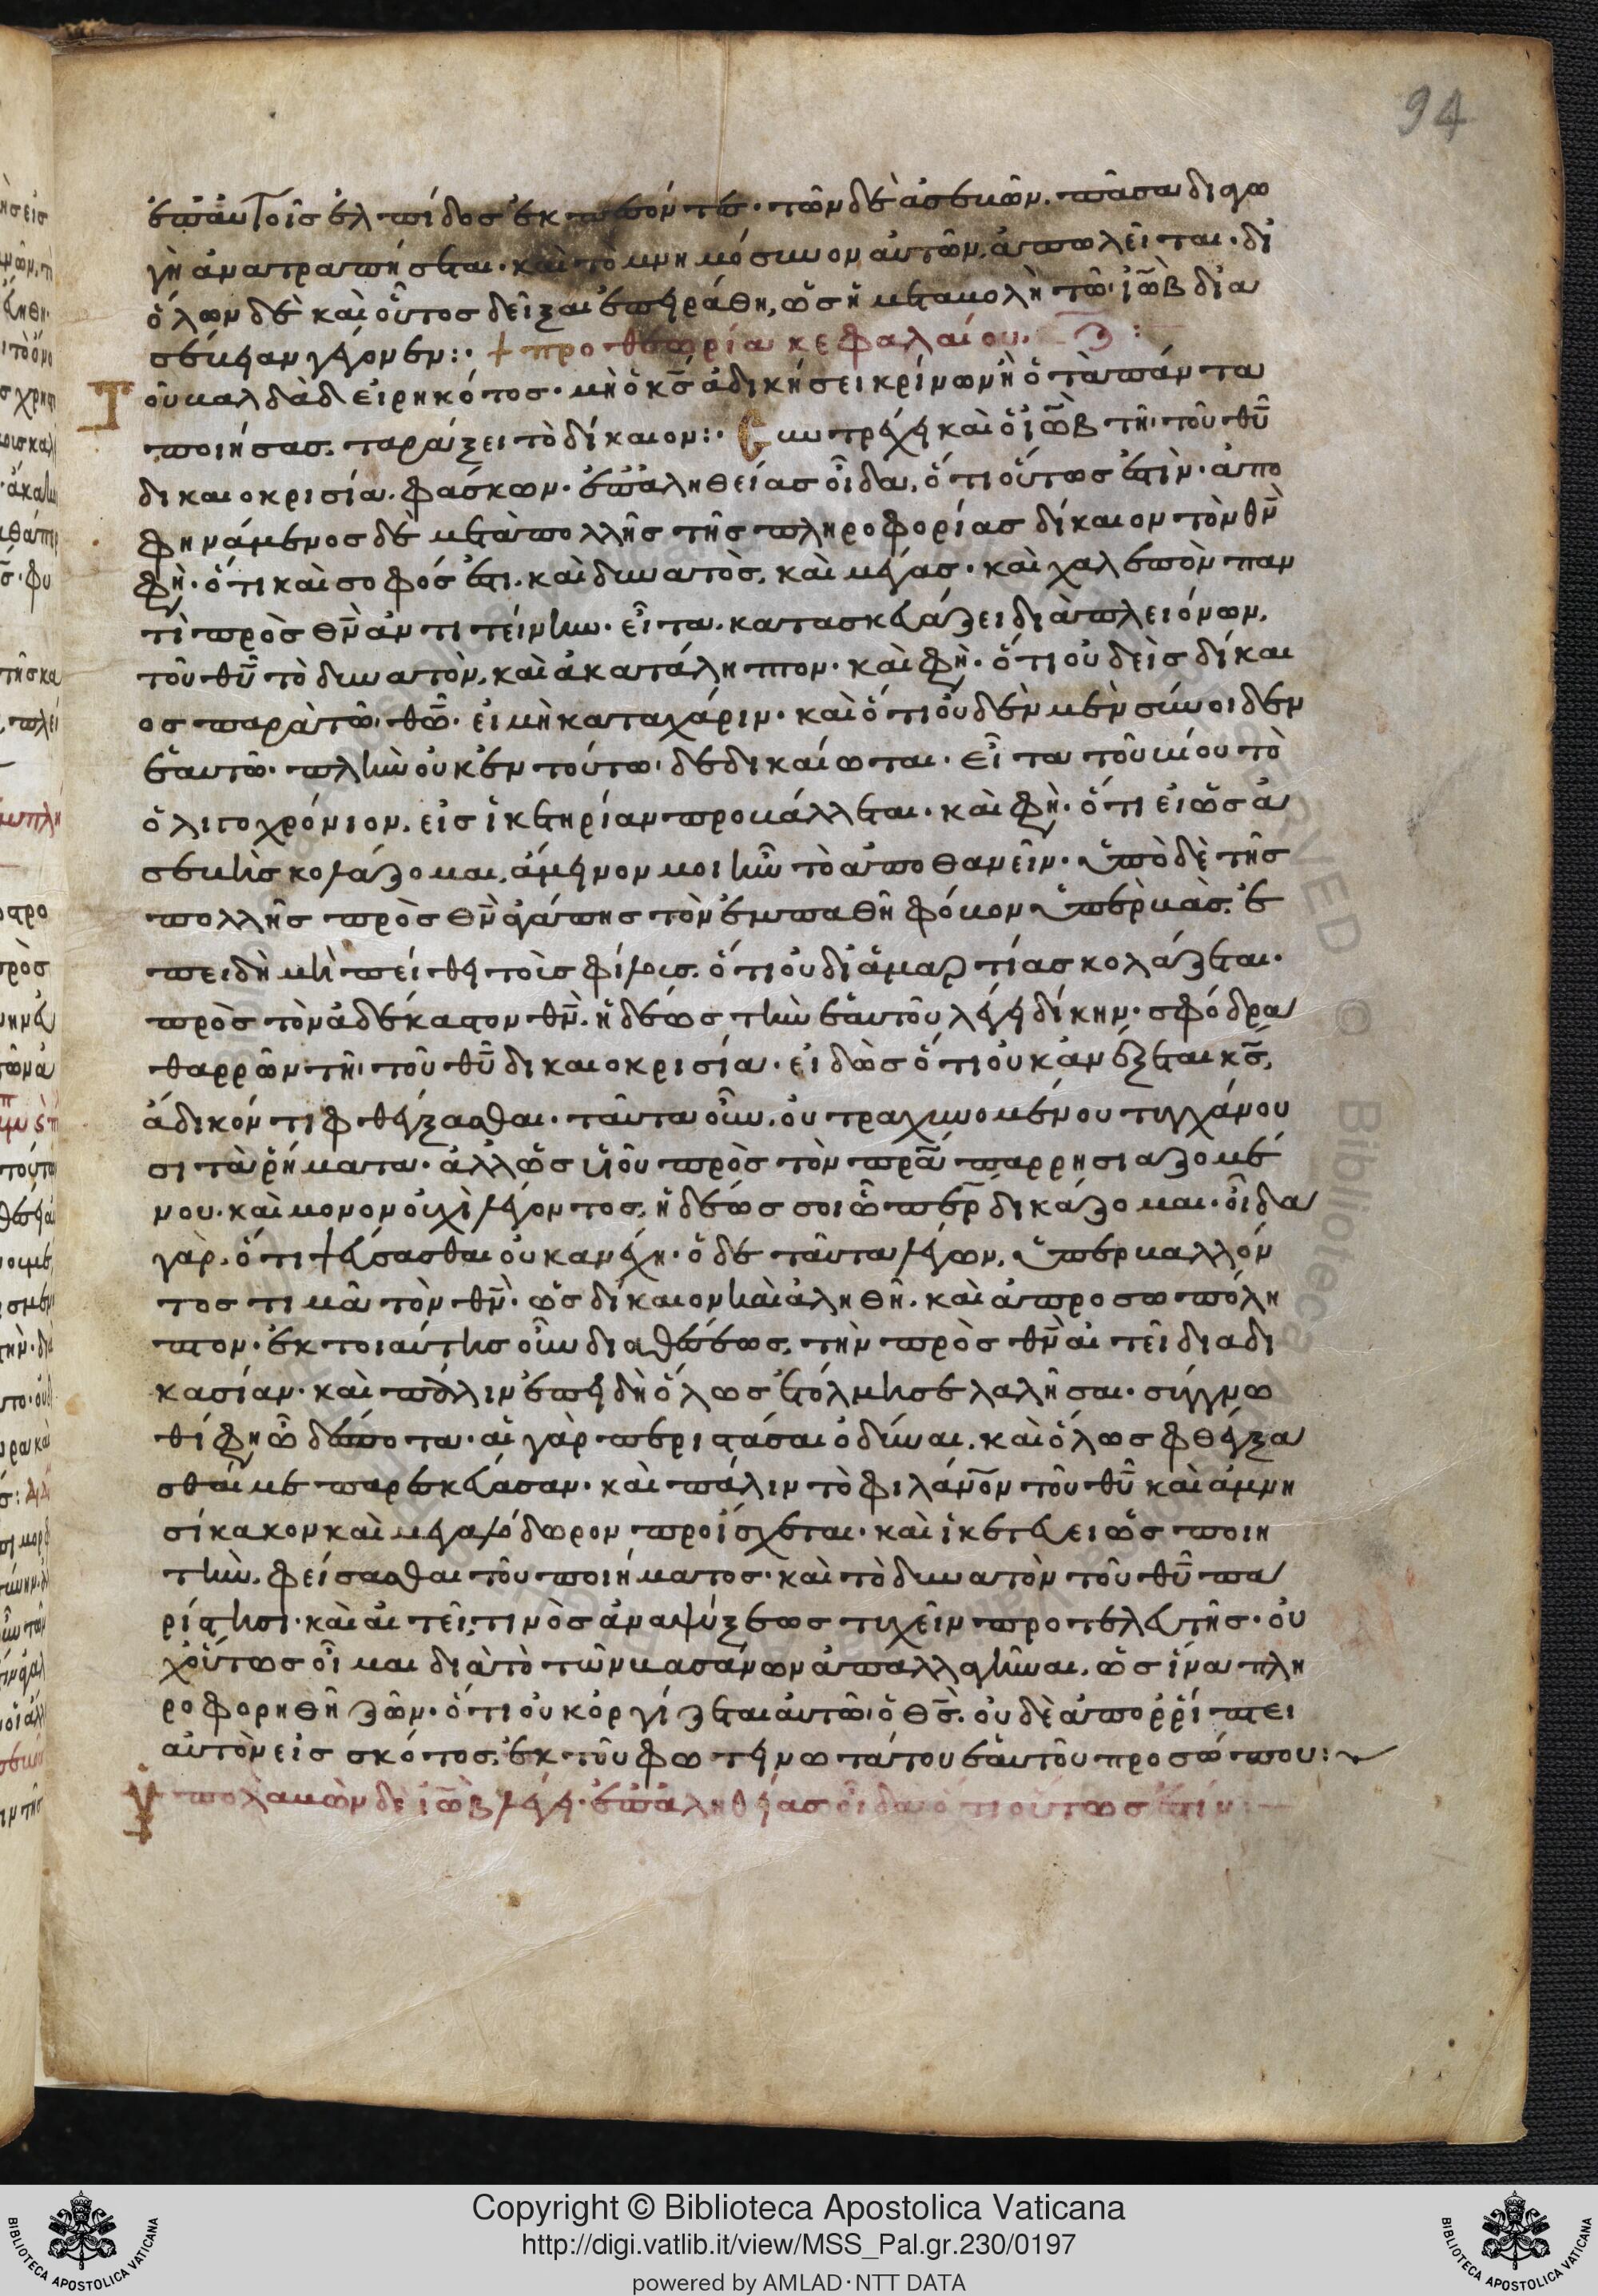 94
ἐπ' αὐτοῖς ἐλπίδος ἐκπεσόντες· τῶν δὲ ἀσεβῶν, πᾶσα διαγω
γὴ ἀνατραπήσεται· καὶ τὸ μνημόσυνον αὐτῶν, ἀπολεῖται· δι
ὅλων δὲ καὶ οὗτος δεῖξαι ἐπειράθη, ὡς ἡ μεταβολὴ τῶ ἰὼβ δι' ἀ
σέβειαν γέγονεν:· + προθεωρία κεφαλαίου
Τοῦ βαλδὰδ εἰρηκότος· μὴ ὁ κς ἀδικήσει κρίνων ἢ ὁ τὰ πάντα
ποιήσας, ταράξει τὸ δίκαιον:· Συντρέχει καὶ ὁ ἰὼβ τῆ τοῦ θῦ
δικαιοκρισία· φάσκων· ἐπ' ἀληθείας οἶδα, ὅτι οὕτως ἐστίν· ἀπο
φηνάμενος δὲ μετὰ πολλῆς τῆς πληροφορίας δίκαιον τὸν θν
φησὶ· ὅτι καὶ σοφός ἐστι· καὶ δυνατὸς, καὶ μέγας· καὶ χαλεπὸν παν
τὶ πρὸς θν ἀντιτείνειν· εἶτα κατασκευάζει διὰ πλειόνων,
τοῦ θῦ τὸ δυνατὸν, καὶ ἀκατάληπτον· καὶ φησὶ· ὅτι οὐδεὶς δίκαι
ος παρὰ τῶ θῶ· εἰ μὴ κατὰ χάριν· καὶ ὅτι οὐδὲν μὲν σύνοιδεν
ἑαυτῶ· πλὴν οὐκ ἐν τούτω δεδικαίωται· εἶτα τοῦ βίου τὸ
ὀλιγοχρόνιον, εἰς ἱκετηρίαν προβάλλεται· καὶ φησὶ· ὅτι εἰ ὡς ἀ
σεβὴς κολάζομαι, ἄμεινον μοι ἦν τὸ ἀποθανεῖν· ὑπὸ δὲ τῆς
πολλῆς πρὸς θν ἀγάπης τὸν ἐμπαθῆ φόβον ὑπερβὰς, ἐ
πειδὴ μὴ πείθει τοὺς φίλους, ὅτι οὐ δι' ἁμαρτίας κολάζεται·
πρὸς τὸν ἀδέκαστον θν, ἡδέως τὴν ἑαυτοῦ λέγει δίκην· σφόδρα
θαρρῶν τῆ τοῦ θῦ δικαιοκρισία· εἰδὼς ὅτι οὐκ ἀνέξεται κς,
ἄδικόν τι φθέγξασθαι· ταῦτα οὖν, οὐ τραχυνομένου τυγχάνου
σι τὰ ῥήματα· ἀλλ' ὡς υἱοῦ πρὸς τὸν πρα παρρησιαζομέ
νου· καὶ μονονουχὶ λέγοντος, ἡδέως σοι ὦ περ δικάζομαι· οἶδα
γὰρ, ὅτι ψεύσασθαι οὐκ ἀνέχη· ὁ δὲ ταῦτα λέγων, ὑπερβαλλόν
τως τιμᾶ τὸν θν· ὡς δίκαιον καὶ ἀληθῆ· καὶ ἀπροσωπόλη
πτον· ἐκ τοιαύτης οὖν διαθέσεως, τὴν πρὸς θν αἰτεῖ διαδι
κασίαν· καὶ πάλιν ἐπειδὴ ὅλως ἐτόλμησε λαλῆσαι· συγγνω
θί φησὶν ὦ δέσποτα· αἱ γὰρ περιστάσαι ὀδύναι, καὶ ὅλως φθέγξα
σθαί με παρεσκεύασαν· καὶ πάλιν τὸ φιλάνον τοῦ θῦ καὶ ἀμνη
σίκακον καὶ μεγαλόδωρον προΐσχεται· καὶ ἱκετεύει ὡς ποιη
τὴν, φείσασθαι τοῦ ποιήματος· καὶ τὸ δυνατὸν τοῦ θῦ πα
ρίστησι· καὶ αἰτεῖ, τινὸς ἀναψύξεως τυχεῖν πρὸ τελευτῆς· οὐ
χ οὕτως οἶμαι διὰ τὸ τῶν βασάνων ἀπαλλαγῆναι, ὡς ἵνα πλη
ροφορηθῆ ζῶν· ὅτι οὐκ ὀργίζεται αὐτῶ ὁ θς, οὐδὲ ἀπορρίπτει
αὐτὸν εἰς σκότος, ἐκ τοῦ φωτεινωτάτου ἑαυτοῦ προσώπου:
Ὑπολαβὼν δὲ ἰὼβ λέγει· ἐπ' ἀληθείας οἶδα ὅτι οὕτως ἐστίν:
Copyright © Biblioteca Apostolica Vaticana
http://digi.vatlib.it/view/MSS_Pal.gr.230/0197
powered by AMLAD·NTT DATA